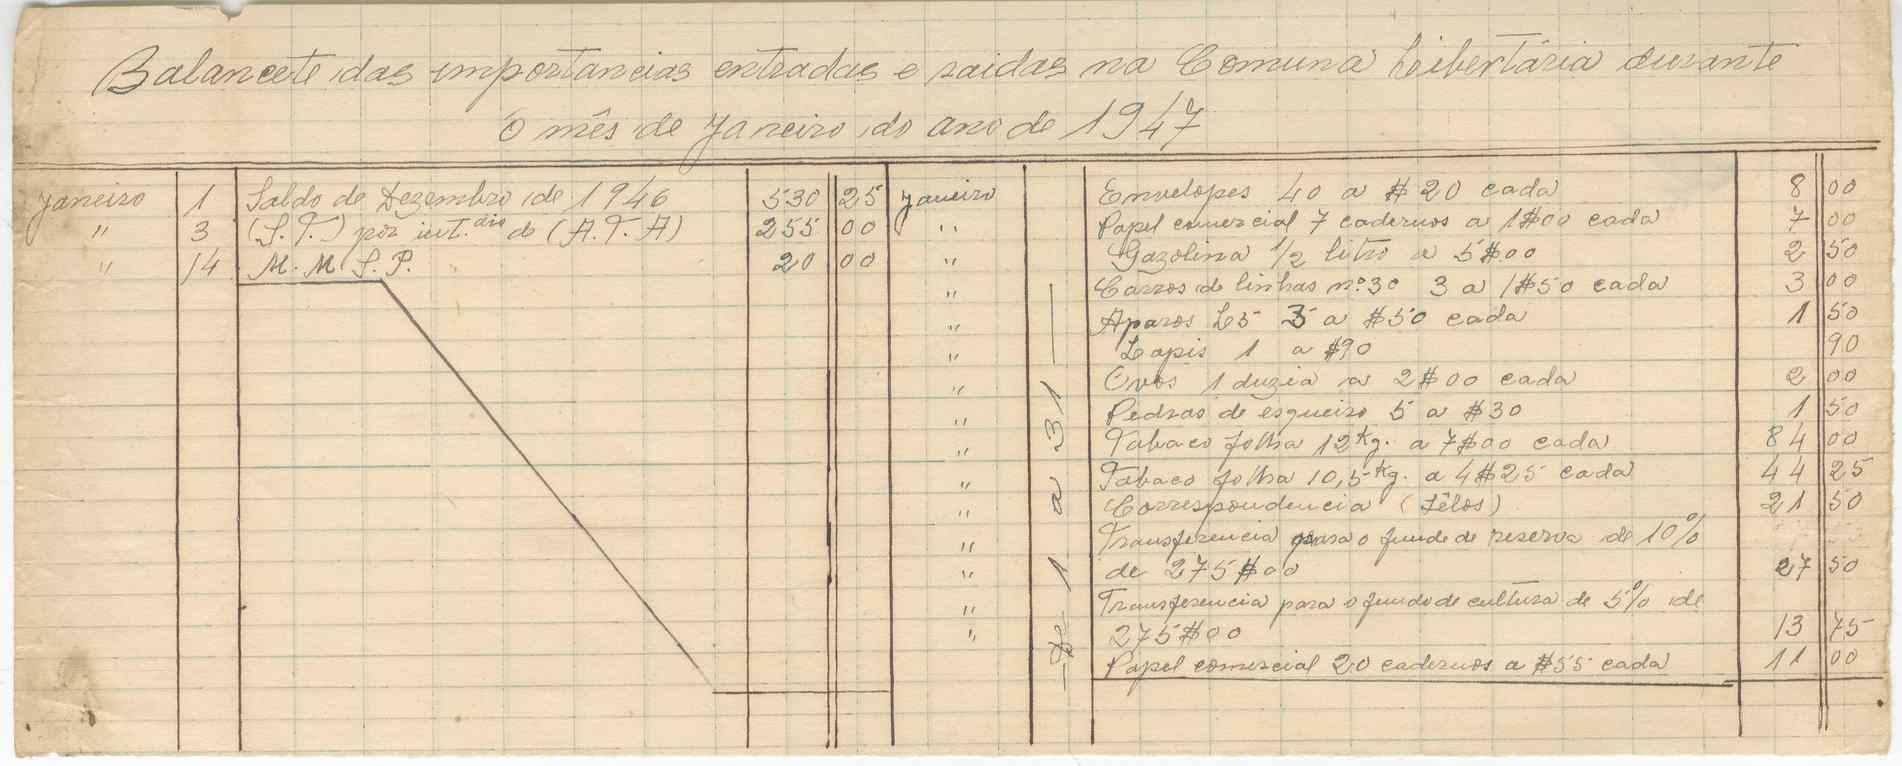 Balancete das importancias entradas e saidas na Comuna Libertária durante
o mês de Janeiro do ano de 1947
Janeiro 1 Saldo de Dezembro de 1946 530 25
" 3 (S.T.) por int.dio de (A.T.A) 255 00
" 14 M. M. S. P. 20 00
Janeiro Envelopes 40 a $20 cada 8 00
" Papel comercial 7 cadernos a 1$00 cada 7 00
" Gazolina 1/2 litro a 5$00 2 50
" Carros de linhas nº 30 3 a 1$50 cada 3 00
" Aparos L5 3 a $50 cada 1 50
" Lapis 1 a $90 90
" Ovos 1 duzia a 2$00 cada 2 00
" Pedras de esqueiro 5 a $30 1 50
" Tabaco folha 12 Kg. a 7$00 cada 84 00
" Tabaco folha 10,5 Kg. a 4$25 cada 44 25
" Correspondencia (Sêlos) 21 50
" Transferencia para o fundo de reserva de 10%
" de 275$00 27 50
" Transferencia para o fundo de cultura de 5% de
" 275$00 13 75
Papel comercial 20 cadernos a $55 cada 11 00
De 1 a 31